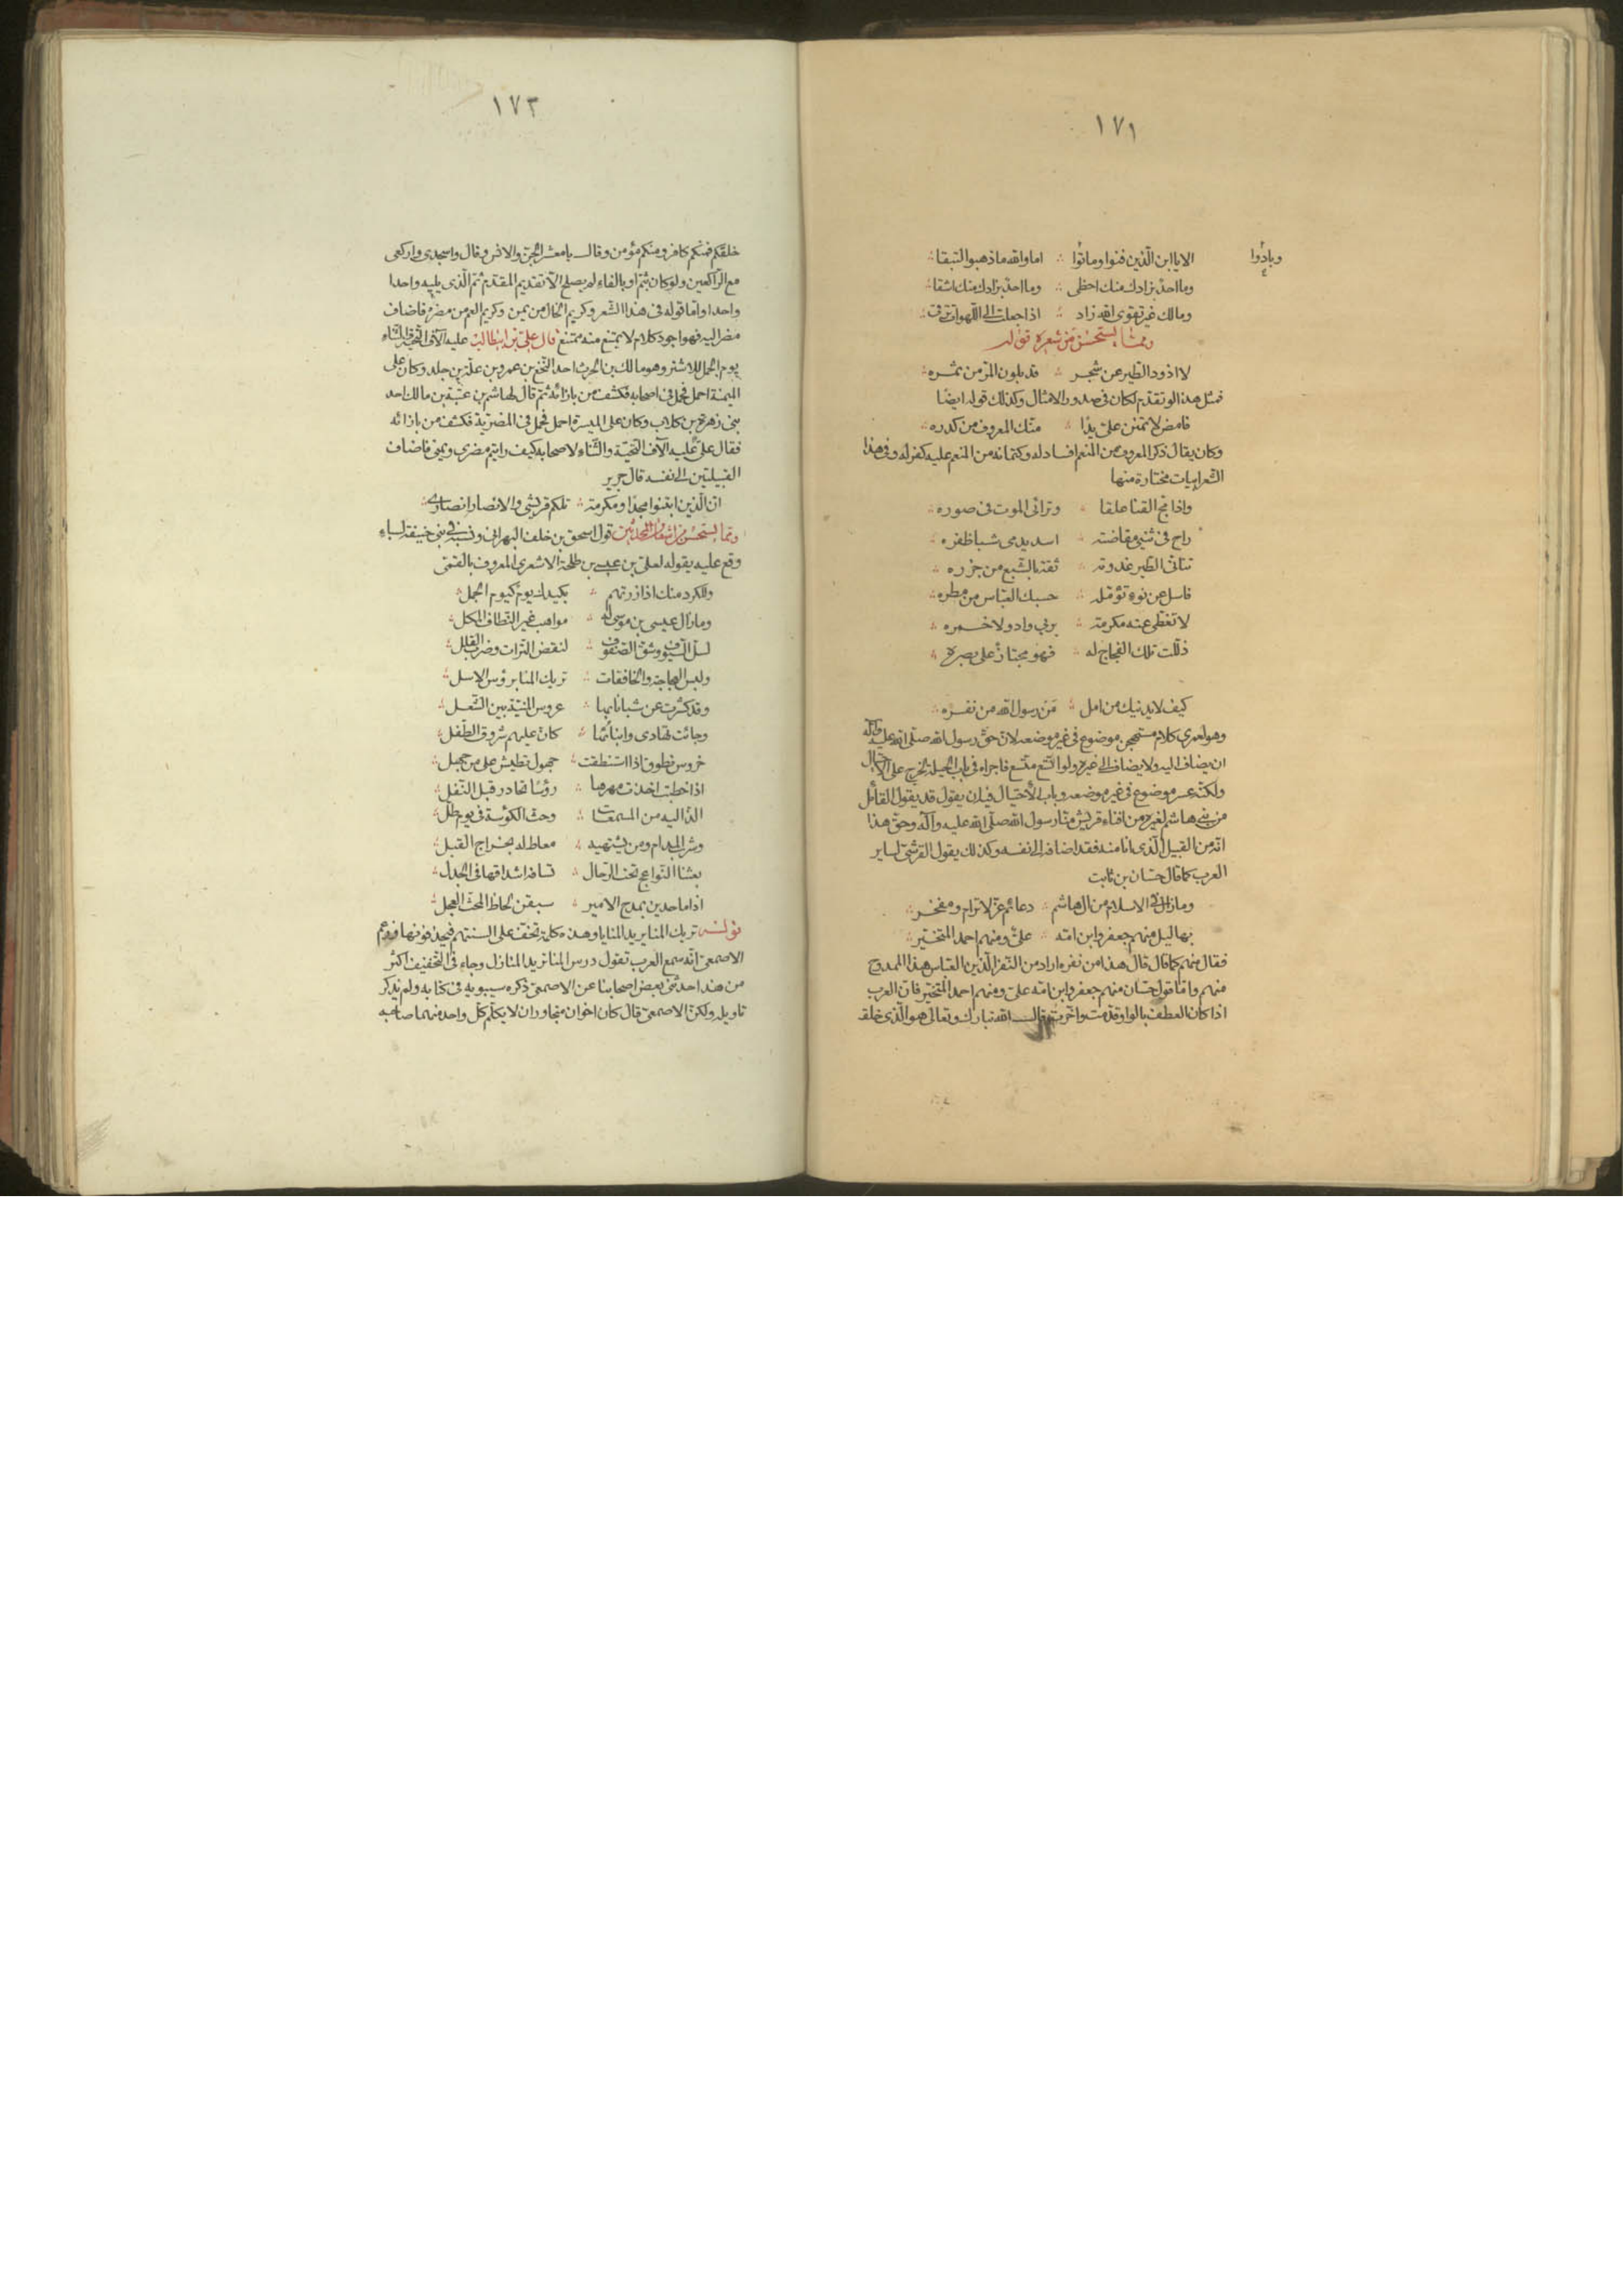 ١٧١
وبادُوا
الا يا ابن الّذين فنوا وماتوا ؞ اما والله ما ذهبوا لتبقا
وما احد بزادك منك احظى ؞ وما احد بزادك منك اشقا
ومالك غير تقوى الله زاد ؞ اذا جعلت الى اللهوات ترقى
وممّا يستحسن من شعره قوله
لا اذود الطير عن شجر ؞ قد بلون المرّ من ثمره
فمثل هذا لو تقدّم لكان فى صدور الامثال وكذلك قوله ايضا
فامض لا تمنن علىّ يدًا ؞ منّك المعروف من كدره
وكان يقال ذكر المعروف من المنعم افساد له وكتمانه من المنعم عليه كفر له وفى هذا
الشعر ابيات مختارة منها
واذا مجّ القنا علقا ؞ وترائى الموت فى صوره
راح فى ثنيى مفاضته ؞ اسد يدمى شبا ظفره
تتائى الطير غدوته ؞ ثقة بالشبع من جزره
فاسل عن نوء تؤمّله ؞ حسبك العبّاس من مطره
لا تغطّى عنه مكرمة ؞ بربى واد ولا خمره
ذلّلت تلك الفجاج له ؞ فهو مجتاز على بصره
كيف لا يدنيك من امل ؞ مَن رسول الله من نفره
وهو لعمرى كلام مستهجن موضوع فى غير موضعه لانّ حقّ رسول الله صلّى الله عليه وآله
ان يضاف اليه ولا يضاف الى غيره ولو اتّسع متّسع فاجراه فى باب الحيلة لخرج على الاحتيال
ولكنّه عسر موضوع فى غير موضعه وباب الاحتيال فيه ان يقول قد يقول القائل
من بنى هاشم لغيره من افناء قريش منّا رسول الله صلّى الله عليه وآله وحقّ هذا
انّه من القبيل الّذى انا منه فقد اضافه الى نفسه وكذلك يقول القرشىّ لساير
العرب كما قال حسّان بن ثابت
وما زال فى الاسلام من ال هاشم ؞ دعائم عزّ لا ترام ومفخر
بهاليل منهم جعفر وابن امّه ؞ علىّ ومنهم احمد المتخيّر
فقال منهم كما قال قال هذا من نفره اراد من النفر الّذين العبّاس هذا الممدوح
منهم وامّا قول حسّان منهم جعفر وابن امّه علىّ ومنهم احمد المتخيّر فانّ العرب
اذا كان العطف بالواو قدّمت واخّرت وقال الله تبارك وتعالى هو الّذى خلقـ
١٧٣
خلقكم فمنكم كافر ومنكم مؤمن وقال يا معشر الجنّ والانس وقال واسجدى واركعى
مع الرّاكعين ولو كان بثمّ او بالفاء لم يصلح الّا تقديم المقدّم ثمّ الّذى يليه واحدا
واحدا وامّا قوله فى هذا الشعر وكريم الخال من يمن وكريم العم من مضر فاضاف
مضر اليه فهو اجود كلام لا يمتنع منه ممتنع قال علىّ بن ابيطالب عليه آلاف التحيّة والثناء
يوم الجمل للاشتر وهو مالك بن الحرث احد النخع بن عمرو بن علة بن جلد وكان على
الميمنة احمل فحمل فى اصحابه فكشف من بازائه ثمّ قال لهاشم بن عتبة بن مالك احد
بنى زهرة بن كلاب وكان على الميسرة احمل فحمل فى المضريّة فكشف من بازائه
فقال علىّ عليه آلاف التحيّة والثناء لاصحابه كيف رايتم مضرى ويمنى فاضاف
القبيلتين الى نفسه قال جرير
انّ الّذين ابتنوا مجدا ومكرمة ؞ تلكم قريشى والانصار انصارى
وممّا يستحسن من اشعار المحدثين قول اسحق بن خلف البهرانى ونسبه فى بنى حنيفة لسباء
وقع عليه يقوله لعلىّ بن عيسى بن طلحة الاشعرى المعروف بالقمّى
وللكرد منك اذا زرتهم ؞ بكيدك يوم كيوم الجمل
وما زال عيسى بن موسى له ؞ مواهب غير النطاف المكل
لسلّ السيوف وشقّ الصفوف ؞ لنقض الترات وضرب القلل
ولبس العجاجة والخافقات ؞ تريك المنا برؤس الاسل
وقد كشّرت عن شبا نابها ؞ عروس المنيّة بين الشعل
وجائت تهادى وابنائها ؞ كانّ عليهم شروق الطفل
خروس نطوق اذا استنطقت ؞ جهول تطيش على من جهل
اذا خطبت اخذت مهرها ؞ رؤسًا تحادر قبل النفل
الذّ اليه من المسمعات ؞ وحثّ الكؤسة فى يوم طل
وشرب المدام ومن يشتهيه ؞ معاط له بمزاج القبل
بعثنا النواعج تحت الرحال ؞ تسافه اشداقها فى الجدل
اذا ما حدين بمدح الامير ؞ سبقن لحاظ المحث العجل
قوله تريك المنا يريد المنايا وهذه كلمة تخفّ على السنتهم فيحذفونها وزعم
الاصمعىّ انّه سمع العرب تقول درس المنا تريد المنازل وجاء فى التخفيف اكثر
من هذا حدّثنى بعض اصحابنا عن الاصمعىّ ذكره سيبويه فى كتابه ولم يذكر
تاويله ولكنّ الاصمعىّ قال كان اخوان متجاوران لا يكلّم كلّ واحد منهما صاحبه